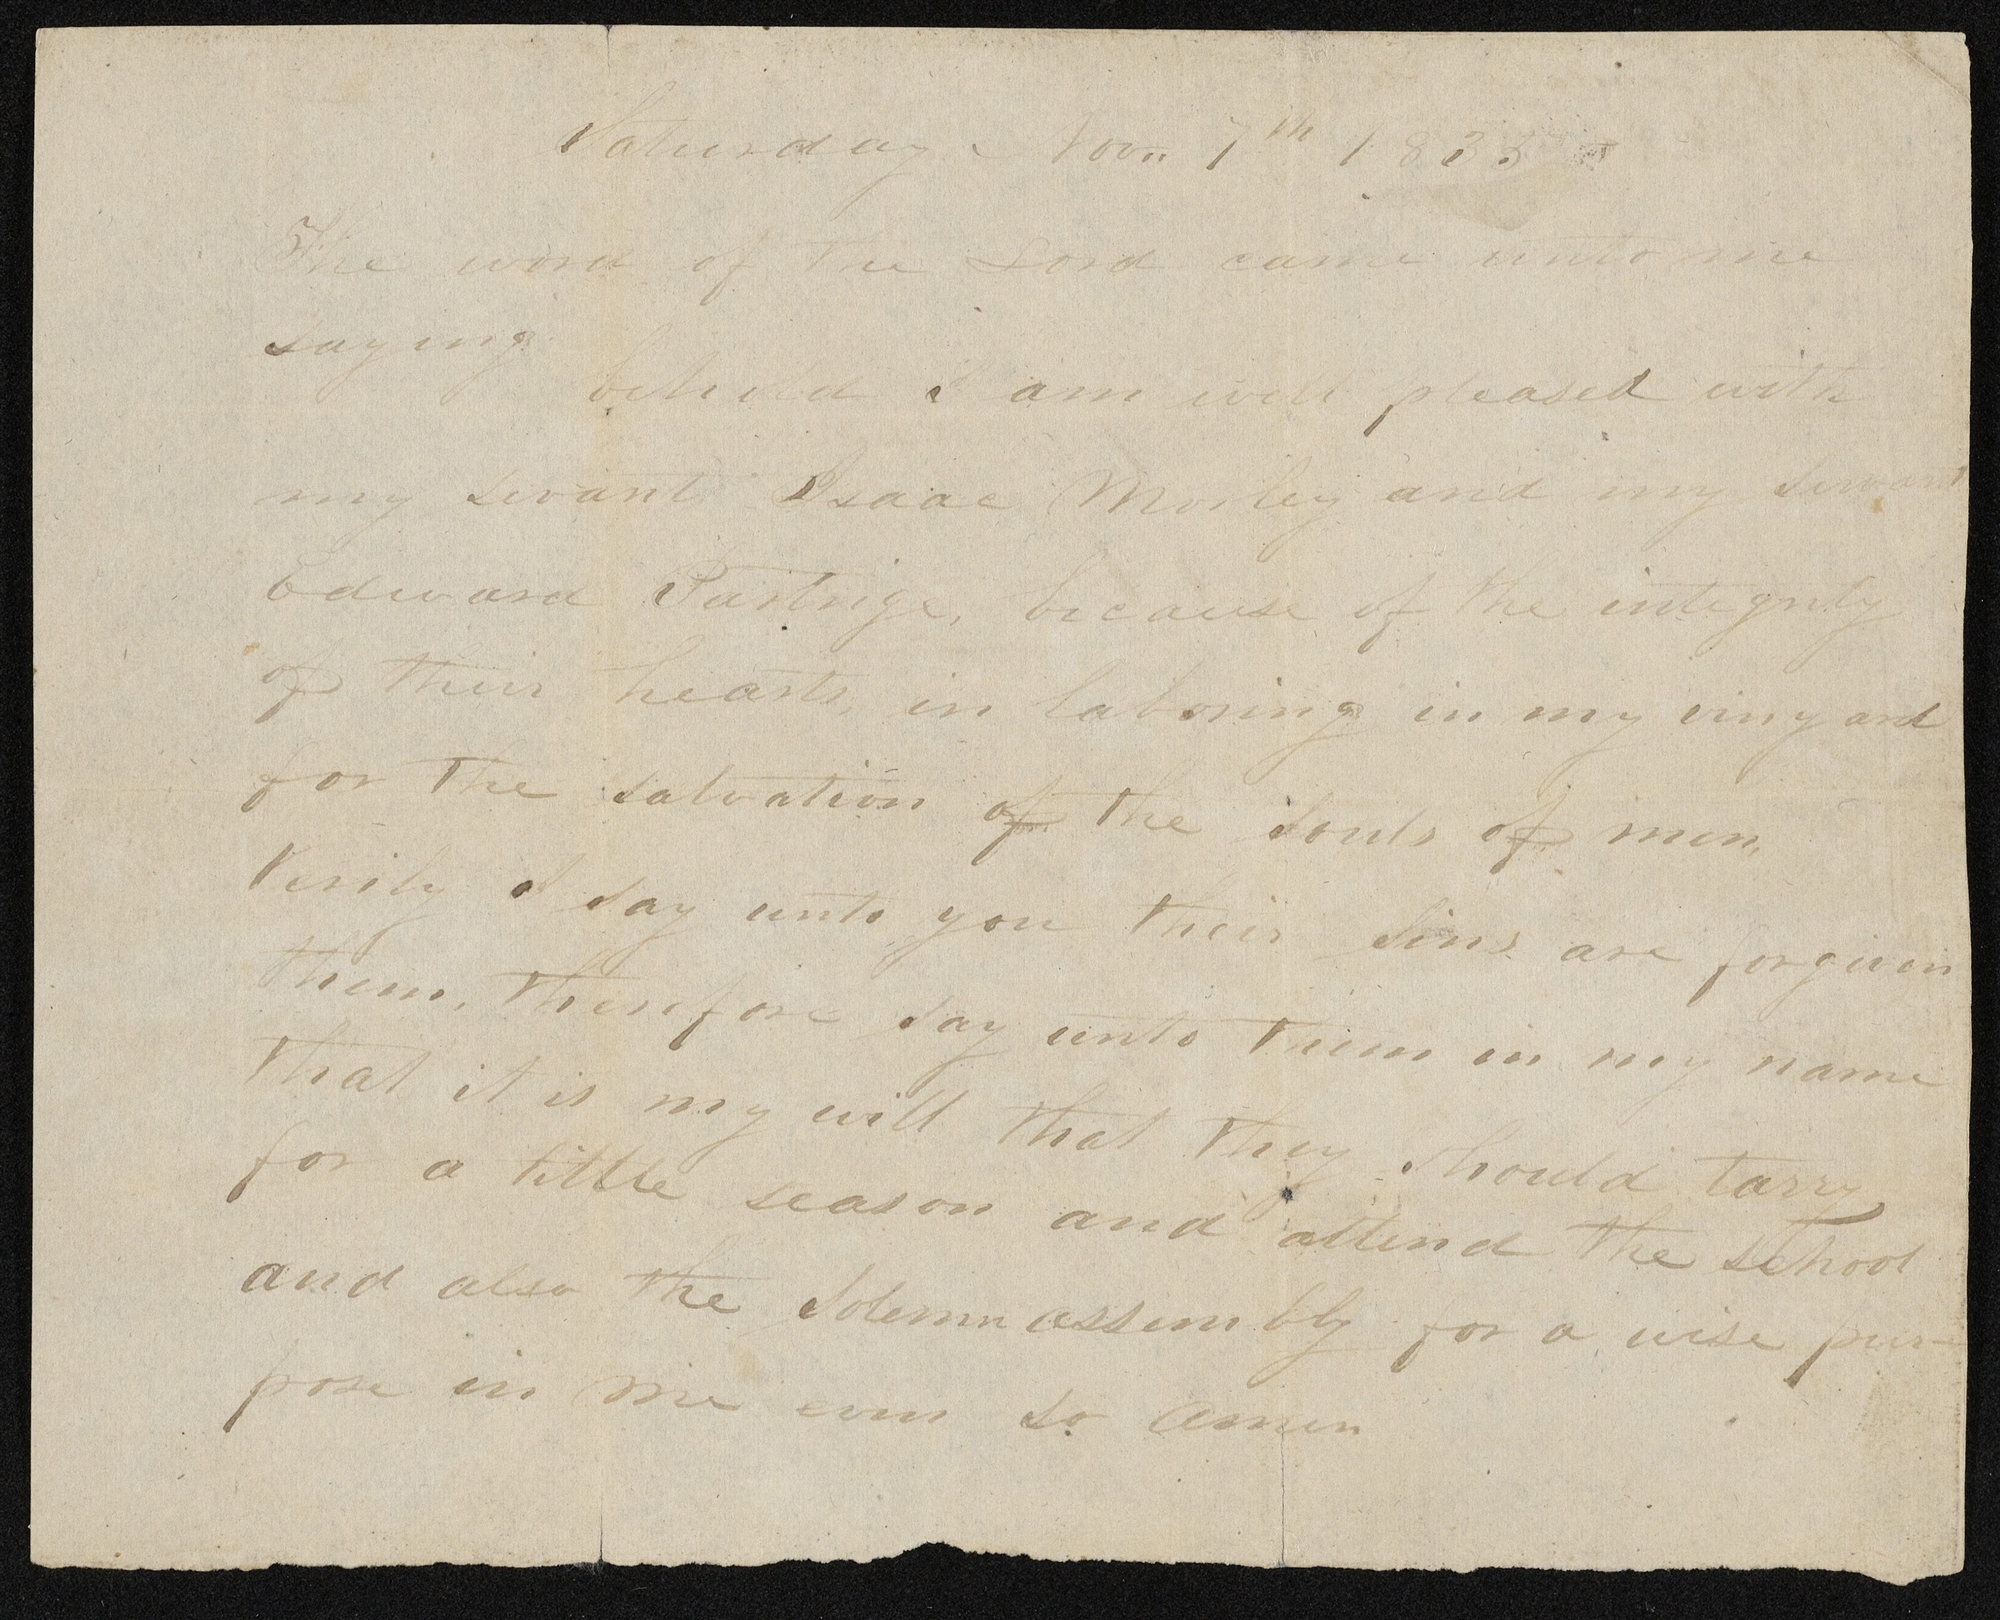 Saturday Nov.. 7th 1835
The word of the Lord came unto me
saying
behold I am well pleased with
my servant Isaac Morley and my servant
Edward Partrige, because of the integrity
of their hearts, in laboring in my vinyard
for the salvation of the souls of men,
Verily I say unto you their sins are forgiven
them, therefore say unto them in my name
that it is my will that they should tarry
for a little season and attend the school
and also the solemn assembly for a wise pur-
pose in me even so Amen